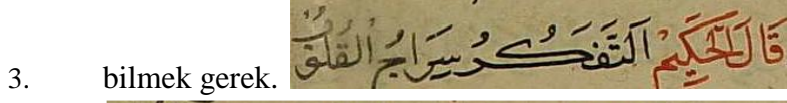 3. bilmek gerek. قَالَ الْحَكِيمْ اَلتَّفَكُّرُ سِرَاجُ الْقُلُوبْ